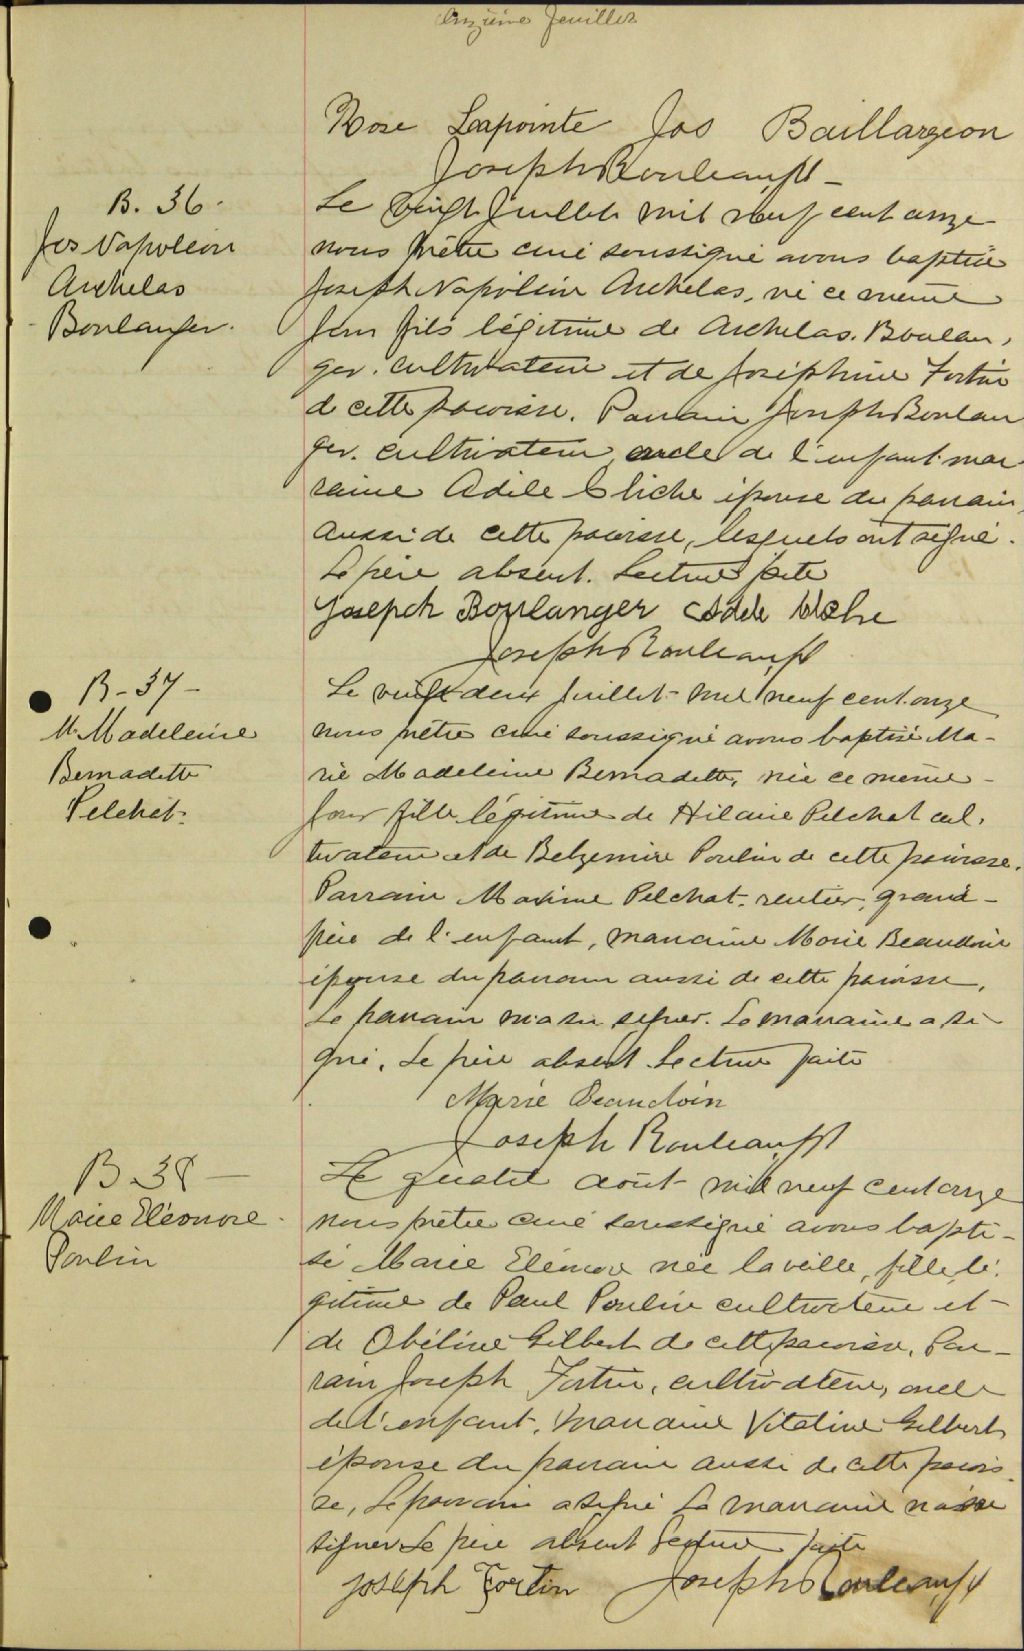 Onzième feuillet
Rose Lapointe Jos Baillargeon
Joseph Rouleau, ptr
B. 36.
Jos Napoléon
Archelas
Boulanger.
Le vingt Juillet mil neuf cent onze
nous prêtre curé soussigné avons baptisé
Joseph Napoléon Archelas, né ce même
jour fils légitime de Archelas Boulan,
ger. cultivateur et de Joséphine Fortin
de cette paroisse. Parrain Joseph Boulan
ger. cultivateur, oncle de l'enfant. mar
raine Adèle Cliche épouse du parrain,
aussi de cette paroisse, lesquels ont signé.
Le père absent. Lecture faite
Joseph Boulanger Adele Cliche
Joseph Rouleau, ptr
B-37-
M. Madeleine
Bernadette
Pelchat.
Le vingt deux Juillet mil neuf cent onze
nous prêtre curé soussigné avons baptisé Ma-
rie Madeleine Bernadette, née ce même
jour fille légitime de Hilaire Pelchat cul.
tivateur et de Belzemire Poulin de cette paroisse.
Parrain Maxime Pelchat, rentier, grand-
père de l'enfant, marraine Marie Beaudoin
épouse du parrain aussi de cette paroisse.
Le parrain n'a su signer. La marraine a si-
gné. Le père absent Lecture faite
Marie Beaudoin
Joseph Rouleau, ptr
B-38-
Marie Eléonore
Poulin
Le quatre août mil neuf cent onze
nous prêtre curé soussigné avons bapti-
sé Marie Eléonore née la veille, fille lé.
gitime de Paul Poulin cultivateur et
de Obéline Gilbert de cette paroisse. Par-
rain Joseph Fortin, cultivateur, oncle
de l'enfant, marraine Vitaline Gilbert
épouse du parrain aussi de cette parois
se, Le parrain a signé La marraine n'a su
signer Le père absent Lecture faite
Joseph Fortin Joseph Rouleau, ptr